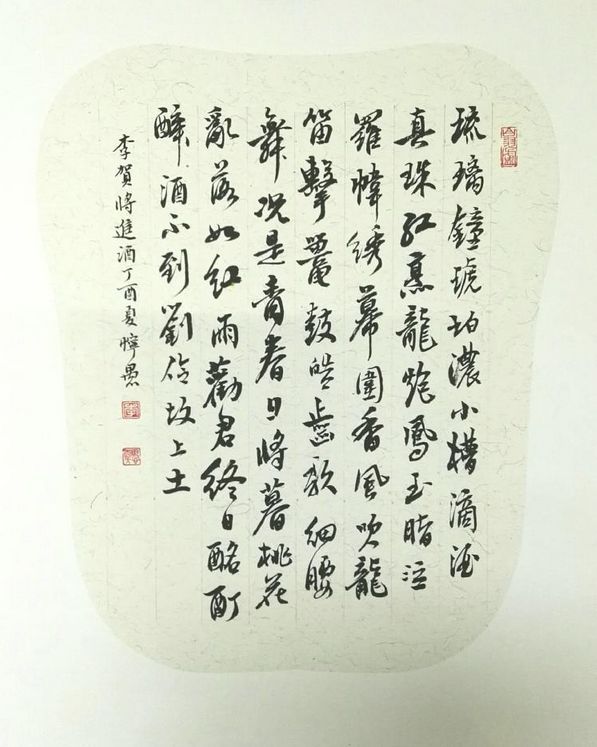 琉璃鐘琥珀濃小槽滴酒
真珠紅烹龍炮鳳玉脂泣
羅幃綉幕圍香風吹龍
笛擊鼉鼓皓齒歌細腰
舞況是青春日將暮桃花
亂落如紅雨勸君終日酩酊
醉酒不到劉伶坟上土
李賀將進酒丁酉夏